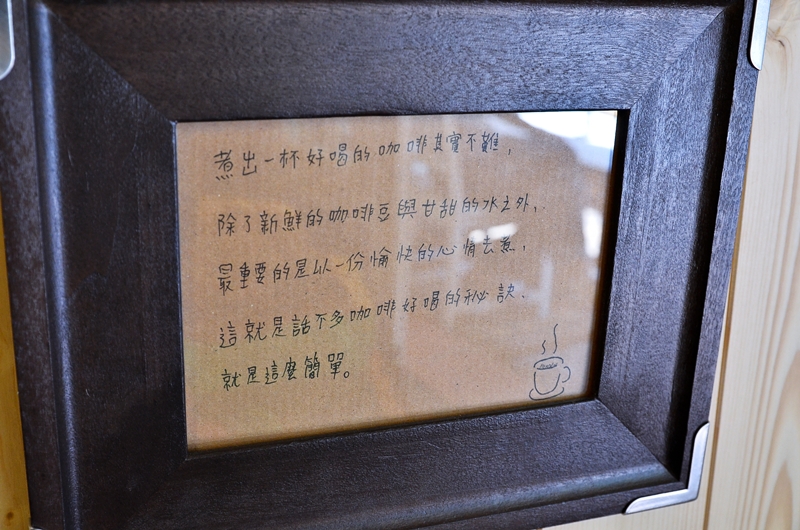 煮出一杯好喝的咖啡其實不難，
除了新鮮的咖啡豆與甘甜的水之外，
最重要的是以一份愉快的心情去煮，
這就是話不多咖啡好喝的秘訣．
就是這麼簡單。